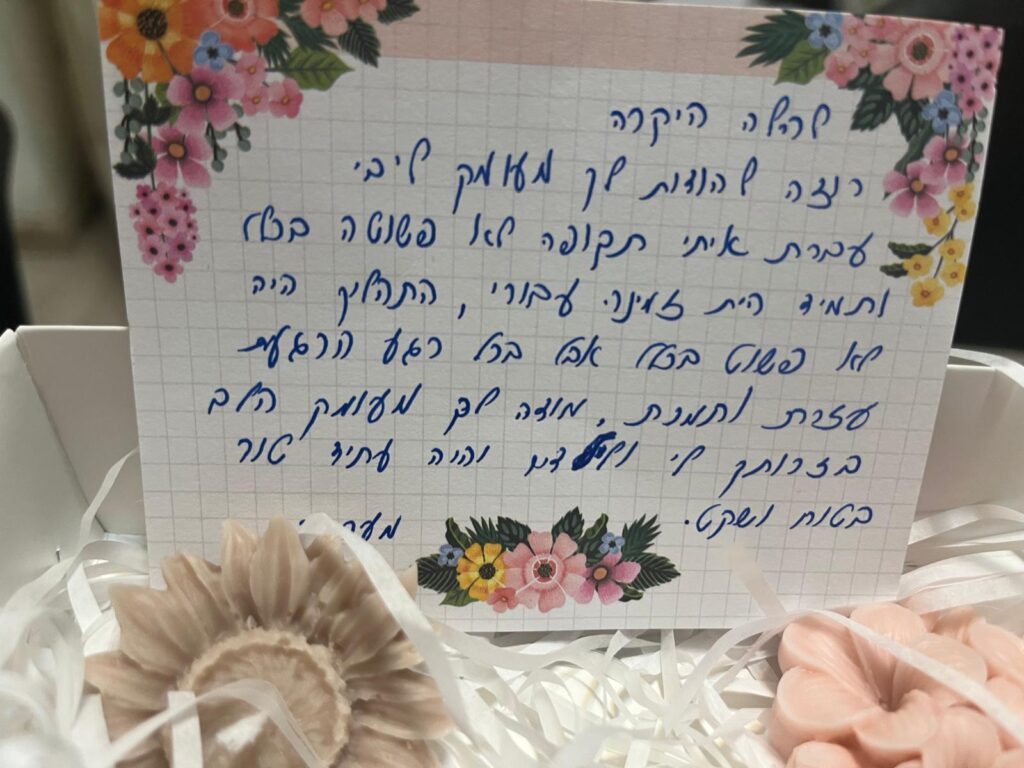 להלה היקרה
רוצה להודות לך מעומק ליבי
עברת איתי תקופה לא פשוטה בכלל
ותמיד הית זמינה עבורי, התהליך היה
לא פשוט בכלל אבל בכל רגע הרגעת
עזרת ותמכת, מודה לך מעומק הלב
בזכותך לי והיה עתיד טוב
בטוח ושקט.